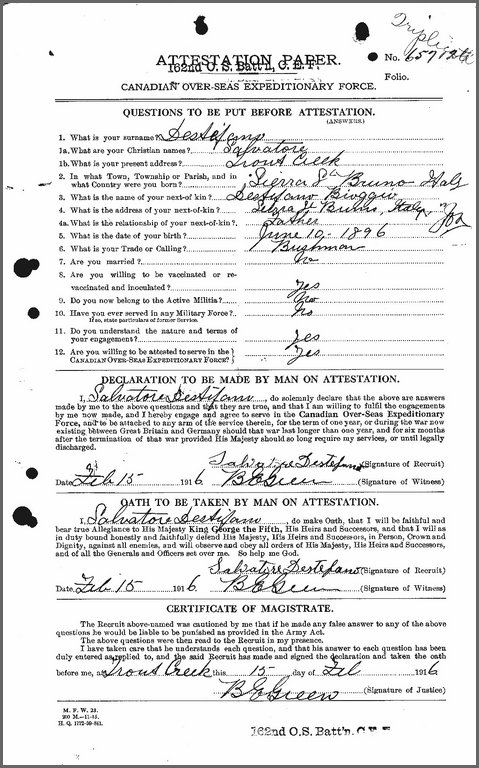 Triplicate
No. 657124
ATTESTATION PAPER.
162nd O.S. Batt'n, C.E.F.
Folio.
CANADIAN OVER-SEAS EXPEDITIONARY FORCE.
QUESTIONS TO BE PUT BEFORE ATTESTATION.
(ANSWERS.)
1. What is your surname? Destifano
1a. What are your Christian names? Salvatore
1b. What is your present address? Trout Creek
2. In what Town, Township or Parish, and in
what Country were you born? Sierra Bruno Italy
3. What is the name of your next-of-kin? Destifano
4. What is the address of your next-of-kin? Bruno, Italy
4a. What is the relationship of your next-of-kin? Father
5. What is the date of your birth? June 10 - 1896
6. What is your Trade or Calling? Bushman
7. Are you married? No
8. Are you willing to be vaccinated or re-
vaccinated and inoculated? Yes
9. Do you now belong to the Active Militia? No
10. Have you ever served in any Military Force? No
If so, state particulars of former Service.
11. Do you understand the nature and terms of
your engagement? Yes
12. Are you willing to be attested to serve in the
CANADIAN OVER-SEAS EXPEDITIONARY FORCE? Yes
DECLARATION TO BE MADE BY MAN ON ATTESTATION.
I, Salvatore Destifano, do solemnly declare that the above are answers
made by me to the above questions and that they are true, and that I am willing to fulfil the engagements
by me now made, and I hereby engage and agree to serve in the Canadian Over-Seas Expeditionary
Force, and to be attached to any arm of the service therein, for the term of one year, or during the war now
existing between Great Britain and Germany should that war last longer than one year, and for six months
after the termination of that war provided His Majesty should so long require my services, or until legally
discharged.
Salvatore Destefano (Signature of Recruit)
Date Feb 15 1916 B E Green (Signature of Witness)
OATH TO BE TAKEN BY MAN ON ATTESTATION.
I, Salvatore Destifano, do make Oath, that I will be faithful and
bear true Allegiance to His Majesty King George the Fifth, His Heirs and Successors, and that I will as
in duty bound honestly and faithfully defend His Majesty, His Heirs and Successors, in Person, Crown and
Dignity, against all enemies, and will observe and obey all orders of His Majesty, His Heirs and Successors,
and of all the Generals and Officers set over me. So help me God.
Salvatore Destefano (Signature of Recruit)
Date Feb 15 1916 B E Green (Signature of Witness)
CERTIFICATE OF MAGISTRATE.
The Recruit above-named was cautioned by me that if he made any false answer to any of the above
questions he would be liable to be punished as provided in the Army Act.
The above questions were then read to the Recruit in my presence.
I have taken care that he understands each question, and that his answer to each question has been
duly entered as replied to, and the said Recruit has made and signed the declaration and taken the oath
before me, at Trout Creek this 15 day of Feb 1916
B E Green (Signature of Justice)
M. F. W. 23.
200 M.—11-15.
H. Q. 1772-39-841.
162nd O.S. Batt'n. C.E.F.